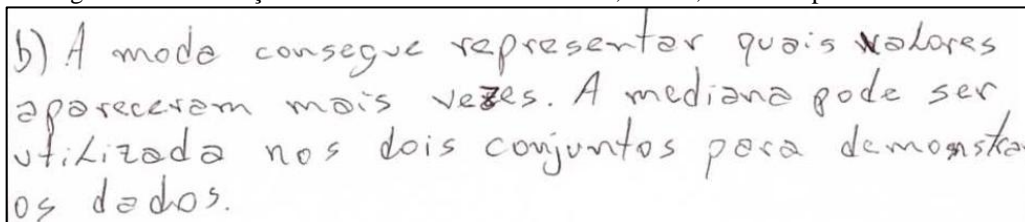 b) A moda consegue representar quais valores
apareceram mais vezes. A mediana pode ser
utilizada nos dois conjuntos para demonstra
os dados.